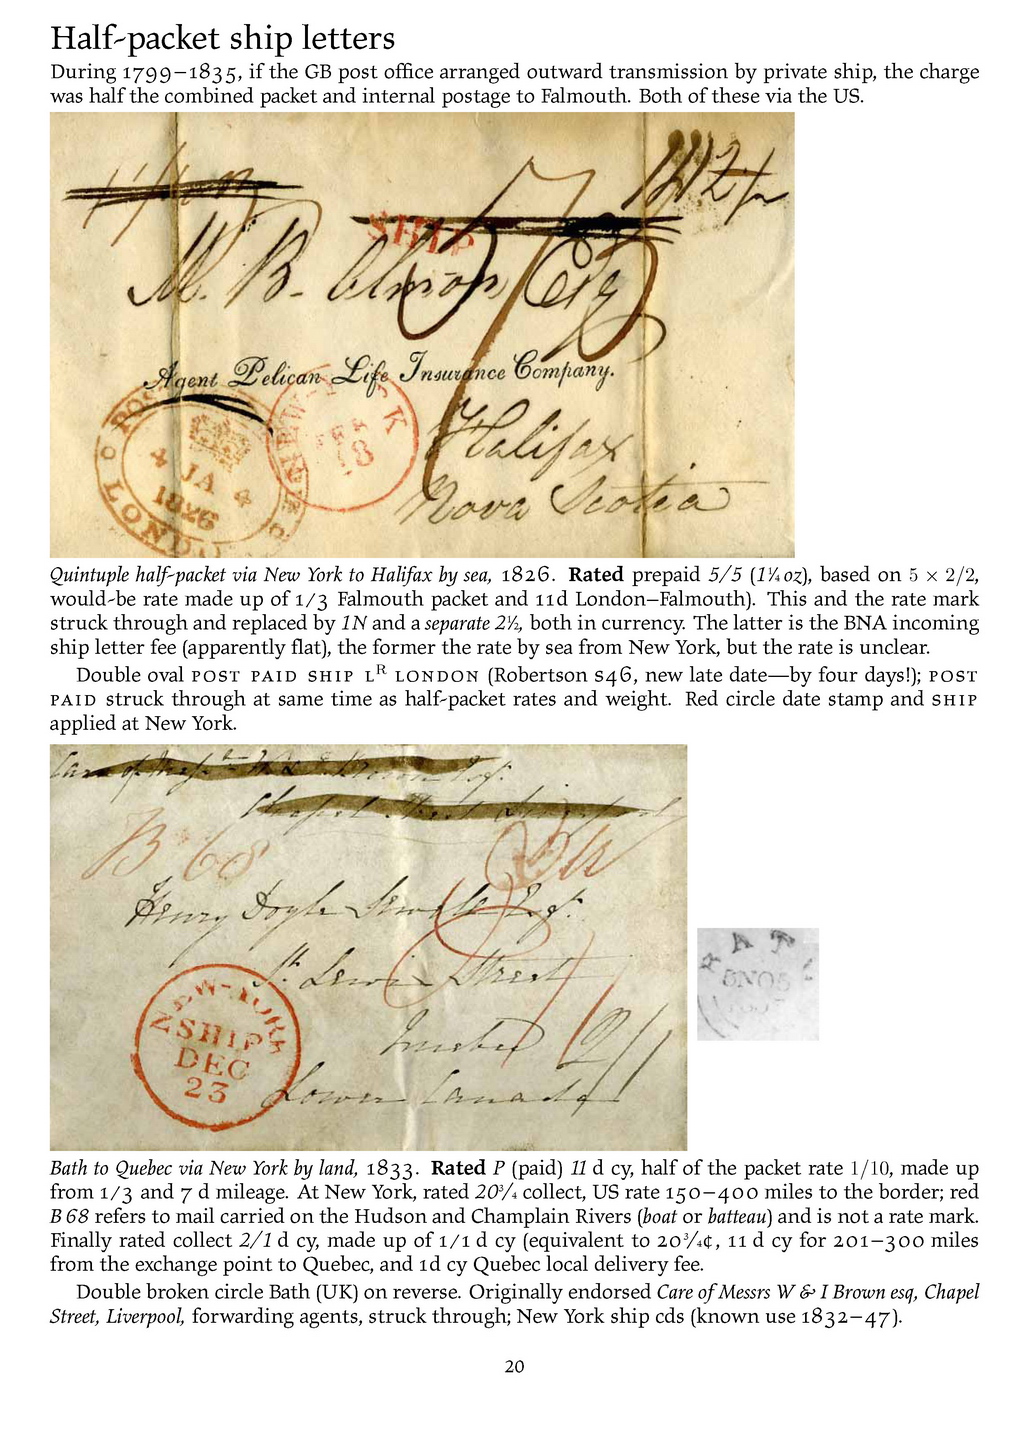 Half-packet ship letters
During 1799–1835, if the GB post office arranged outward transmission by private ship, the charge
was half the combined packet and internal postage to Falmouth. Both of these via the US.
SHIP
M. B. Almon Esq
Agent Pelican Life Insurance Company.
NEW-YORK
FEB
18
Halifax
Nova Scotia
POST PAID
JA 4
1826
LONDON
Quintuple half-packet via New York to Halifax by sea, 1826. Rated prepaid 5/5 (1¼ oz), based on 5 × 2/2,
would-be rate made up of 1/3 Falmouth packet and 11d London–Falmouth). This and the rate mark
struck through and replaced by 1N and a separate 2½, both in currency. The latter is the BNA incoming
ship letter fee (apparently flat), the former the rate by sea from New York, but the rate is unclear.
Double oval POST PAID SHIP Lᴿ LONDON (Robertson S46, new late date—by four days!); POST
PAID struck through at same time as half-packet rates and weight. Red circle date stamp and SHIP
applied at New York.
B 68
Henry Doyle Sewell Esqr.
St. Lewis Street
Quebec 2/1
Lower Canada
NEW-YORK
SHIP
DEC
23
Bath to Quebec via New York by land, 1833. Rated P (paid) 11 d cy, half of the packet rate 1/10, made up
from 1/3 and 7 d mileage. At New York, rated 20¾ collect, US rate 150–400 miles to the border; red
B 68 refers to mail carried on the Hudson and Champlain Rivers (boat or batteau) and is not a rate mark.
Finally rated collect 2/1 d cy, made up of 1/1 d cy (equivalent to 20¾¢, 11 d cy for 201–300 miles
from the exchange point to Quebec, and 1d cy Quebec local delivery fee.
Double broken circle Bath (UK) on reverse. Originally endorsed Care of Messrs W & I Brown esq, Chapel
Street, Liverpool, forwarding agents, struck through; New York ship cds (known use 1832–47).
20